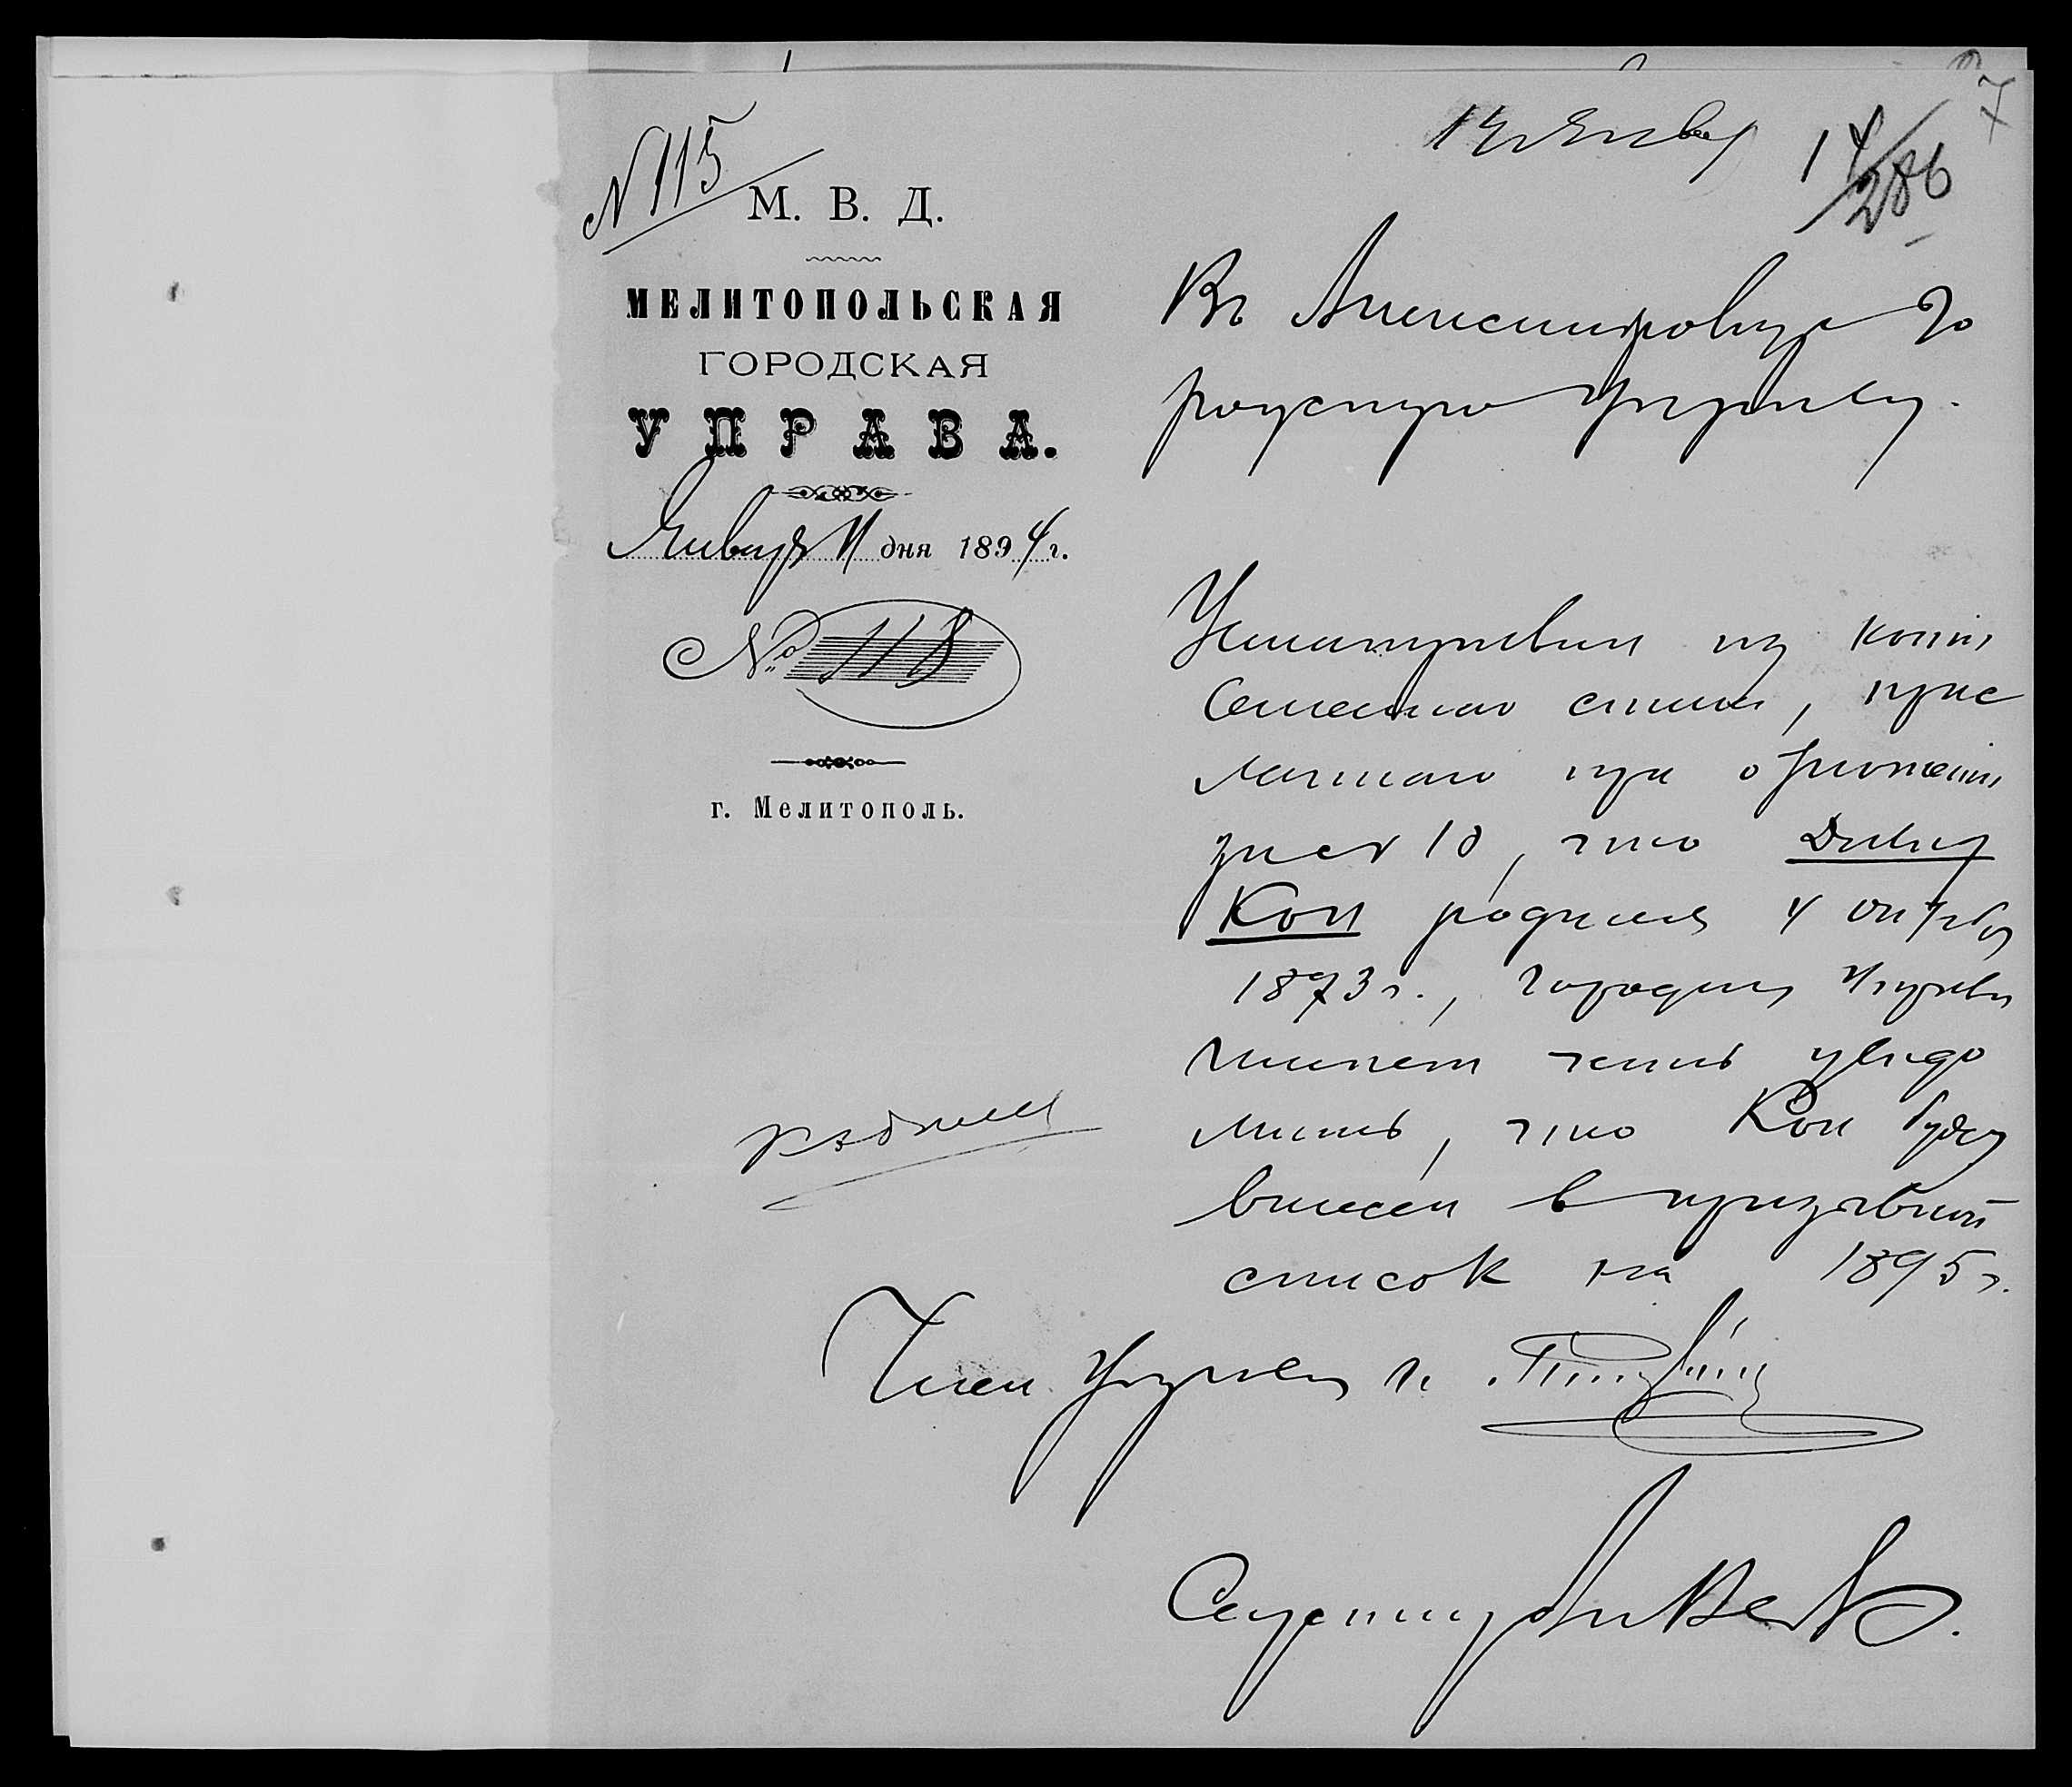 № 115
14 Январ
14/286
7
М. В. Д.
МЕЛИТОПОЛЬСКАЯ
ГОРОДСКАЯ
УПРАВА.
Января 11 дня 1894 г.
№ 118
г. Мелитополь.
Въ Александровскую Го
родскую Управу.
Усматривая из копии
Семейнаго списка, прис
ланнаго при отношении
за № 10, что Давид
Кон родился 4 октября
1873 г., Городская Управа
имеет честь уведо
мить, что Кон будет
внесен в призывной
список на 1895 г.
Член Управы
Секретарь